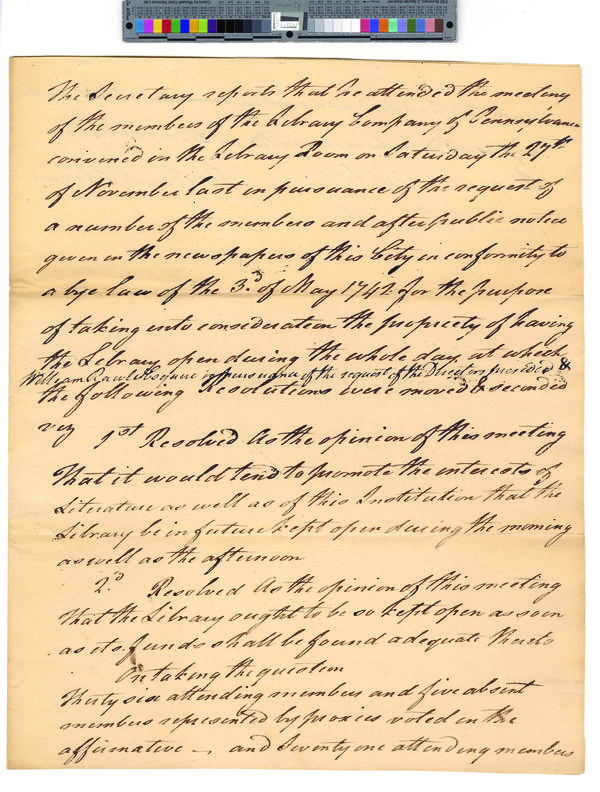 The Secretary reports that he attended the meeting
of the members of the Library Company of Pennsylvania
convened in the Library Room on Saturday the 27th
of November last in pursuance of the request of
a number of the members and after public notice
given in the newspapers of this City in conformity to
a bye law of the 3.d of May 1742 for the purpose
of taking into consideration the propriety of having
the Library open during the whole day, at which
William Rawle Esquire in pursuance of the request of the Directors presided &
the following Resolutions were moved & seconded
viz 1st Resolved As the opinion of this meeting
That it would tend to promote the interests of
Literature as well as of this Institution that the
Library be in future kept open during the morning
as well as the afternoon
2.d Resolved As the opinion of this meeting
That the Library ought to be so kept open as soon
as its funds shall be found adequate thereto
On taking the question
Thirty six attending members and five absent
members represented by proxies voted in the
affirmative — and Seventy one attending members